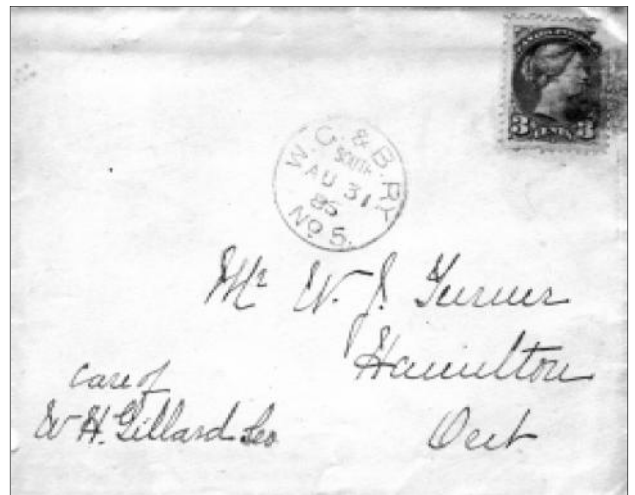 CANADA POSTAGE
3 CENTS 3
W. G. & B. RY
SOUTH
AU 31
85
No 5.
Mr W. J. Turner
Hamilton
Ont
care of
W H. Gillard & Co